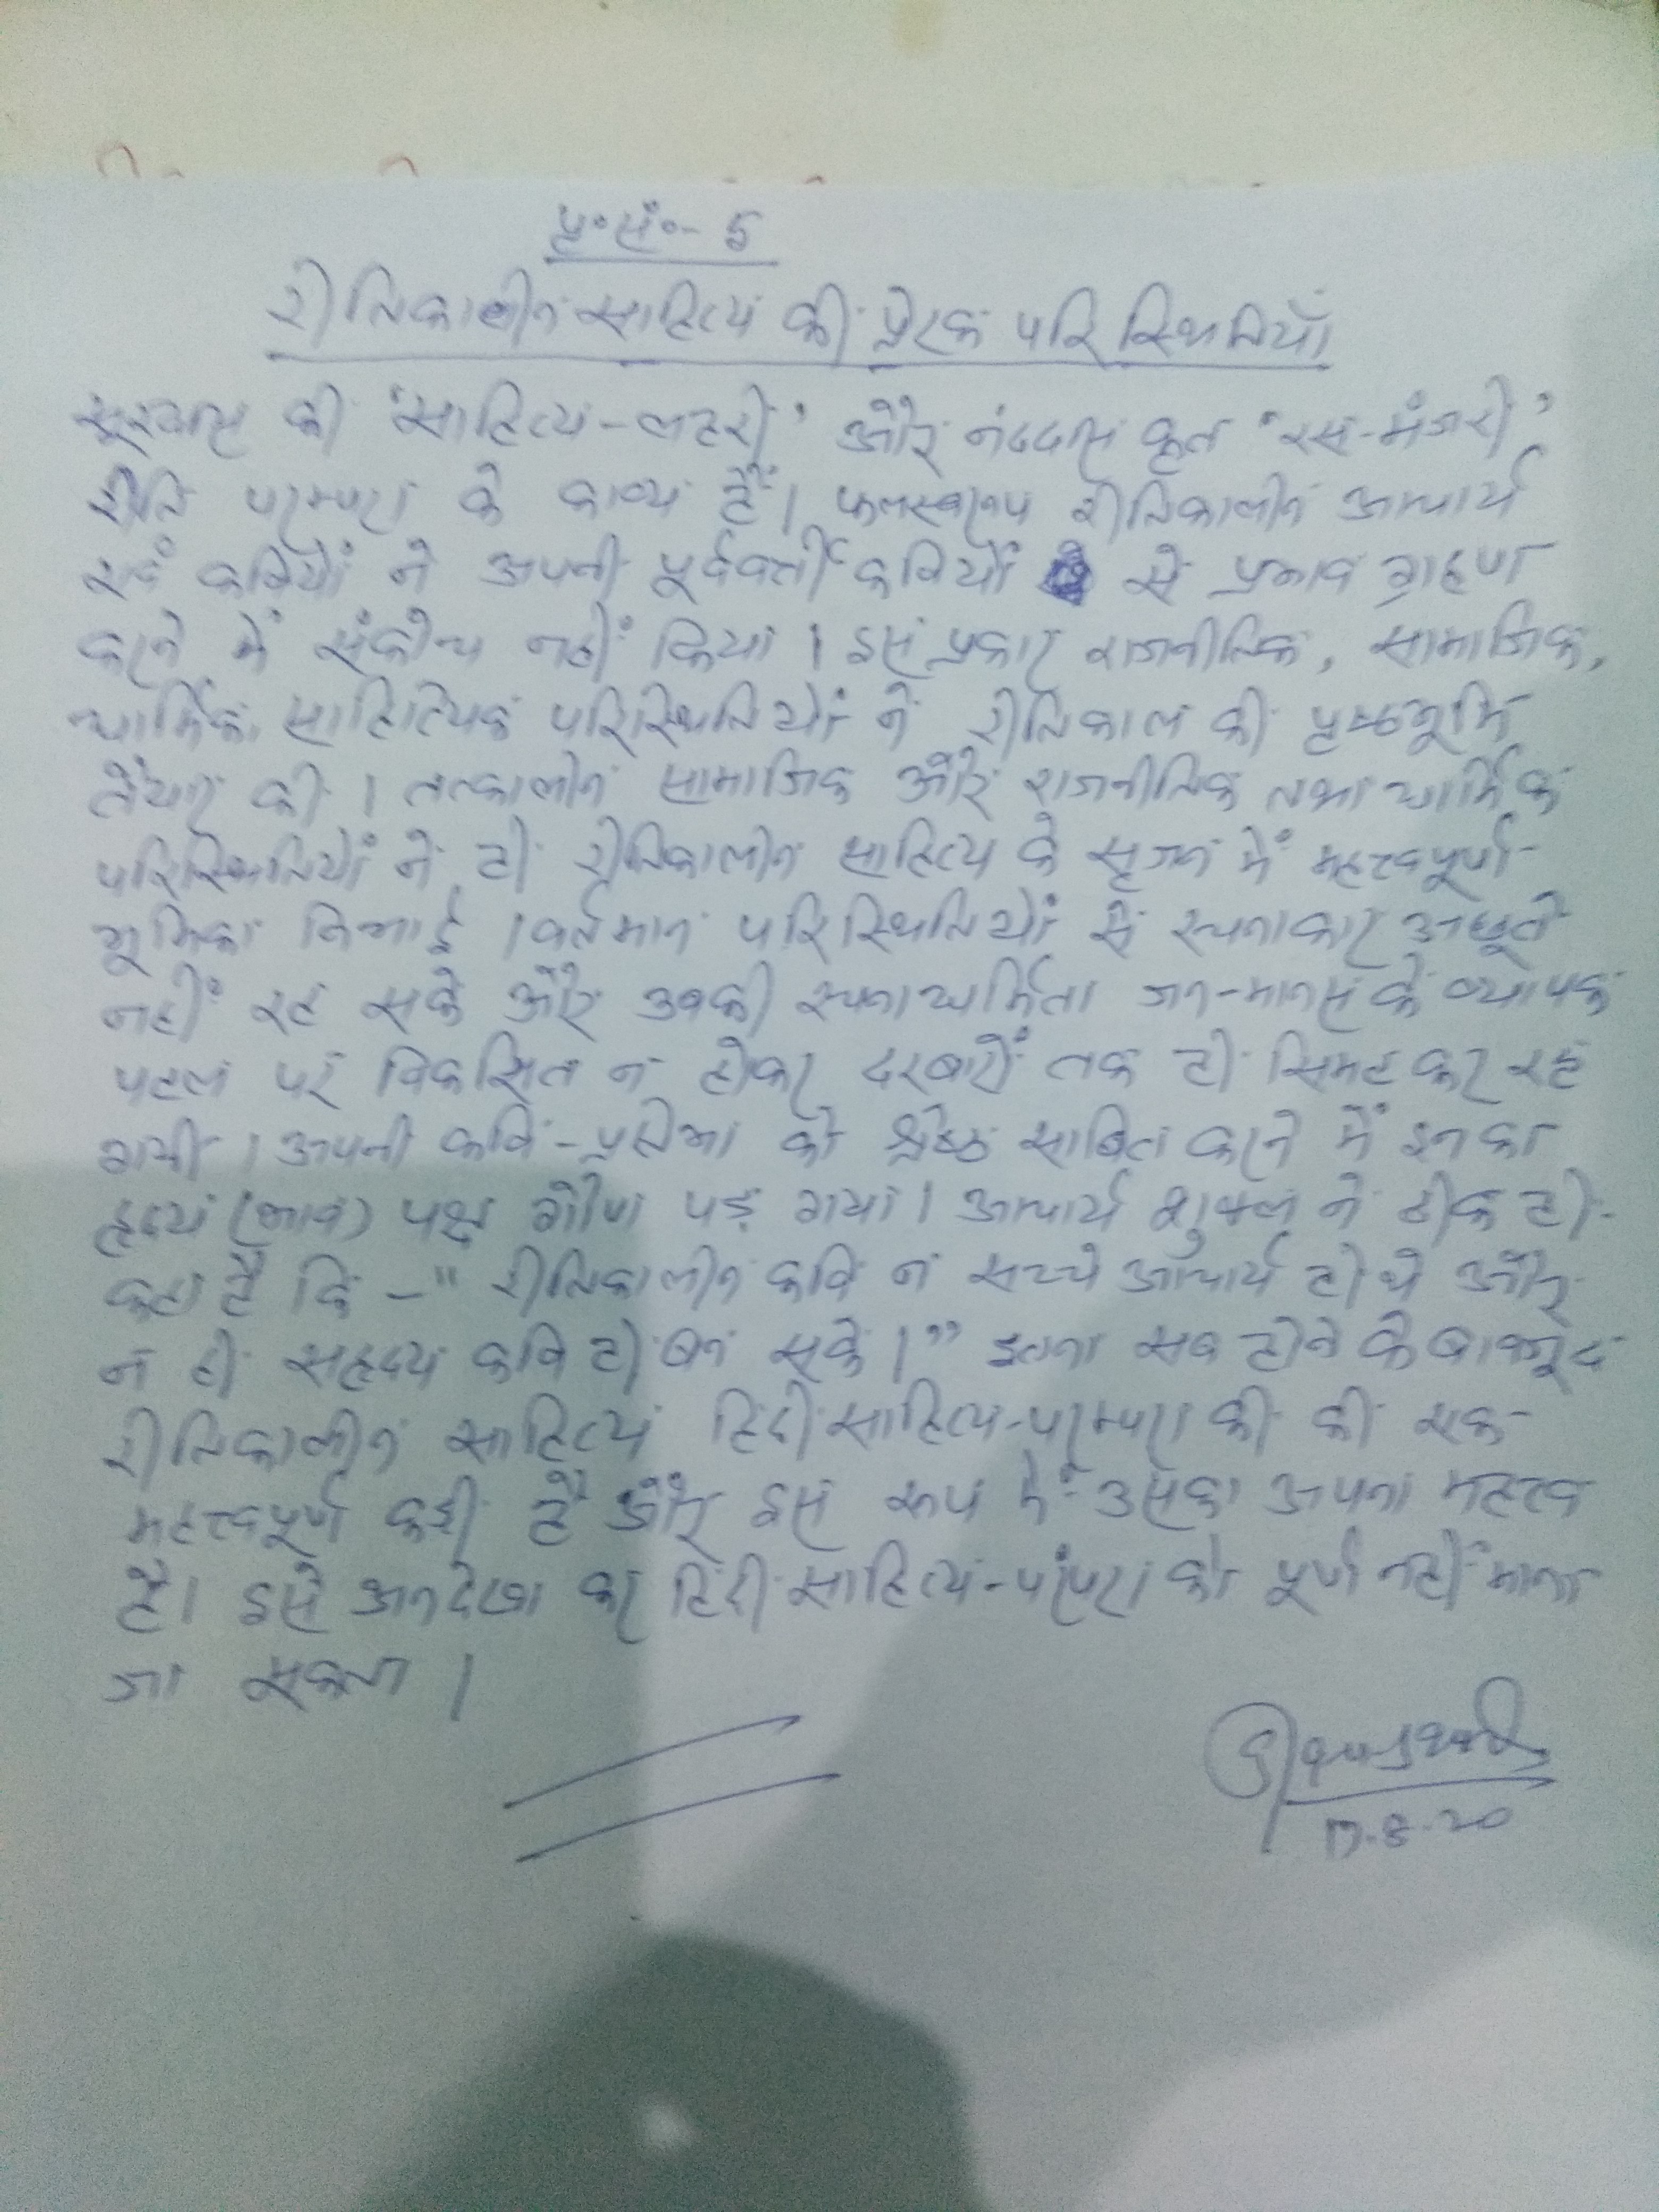 पृ॰सं॰- 5
रीतिकालीन साहित्य की प्रेरक परिस्थितियाँ
सूरदास की 'साहित्य-लहरी' और नंददास कृत 'रस-मंजरी'
रीति परम्परा के काव्य हैं। फलस्वरूप रीतिकालीन आचार्य
एवं कवियों ने अपनी पूर्ववर्ती कवियों से प्रभाव ग्रहण
करने में संकोच नहीं किया। इस प्रकार राजनीतिक, सामाजिक,
धार्मिक साहित्यिक परिस्थितियों ने रीतिकाल की पृष्ठभूमि
तैयार की। तत्कालीन सामाजिक और राजनीतिक तथा धार्मिक
परिस्थितियों ने ही रीतिकालीन साहित्य के सृजन में महत्त्वपूर्ण
भूमिका निभाई। वर्तमान परिस्थितियों से रचनाकार अछूते
नहीं रह सके और उनकी रचनाधर्मिता जन-मानस के व्यापक
पटल पर विकसित न होकर दरबारों तक ही सिमट कर रह
गयी। अपनी कवि-प्रतिभा को श्रेष्ठ साबित करने में इनका
हृदय (भाव) पक्ष गौण पड़ गया। आचार्य शुक्ल ने ठीक ही
कहा है कि -" रीतिकालीन कवि न सच्चे आचार्य ही थे और
न ही सहृदय कवि ही बन सके।" इतना सब होने के बावजूद
रीतिकालीन साहित्य हिंदी साहित्य-परम्परा की की एक
महत्त्वपूर्ण कड़ी है और इस रूप में उसका अपना महत्त्व
है। इसे अनदेखा कर हिंदी साहित्य-परंपरा को पूर्ण नहीं माना
जा सकता।
17.8.20